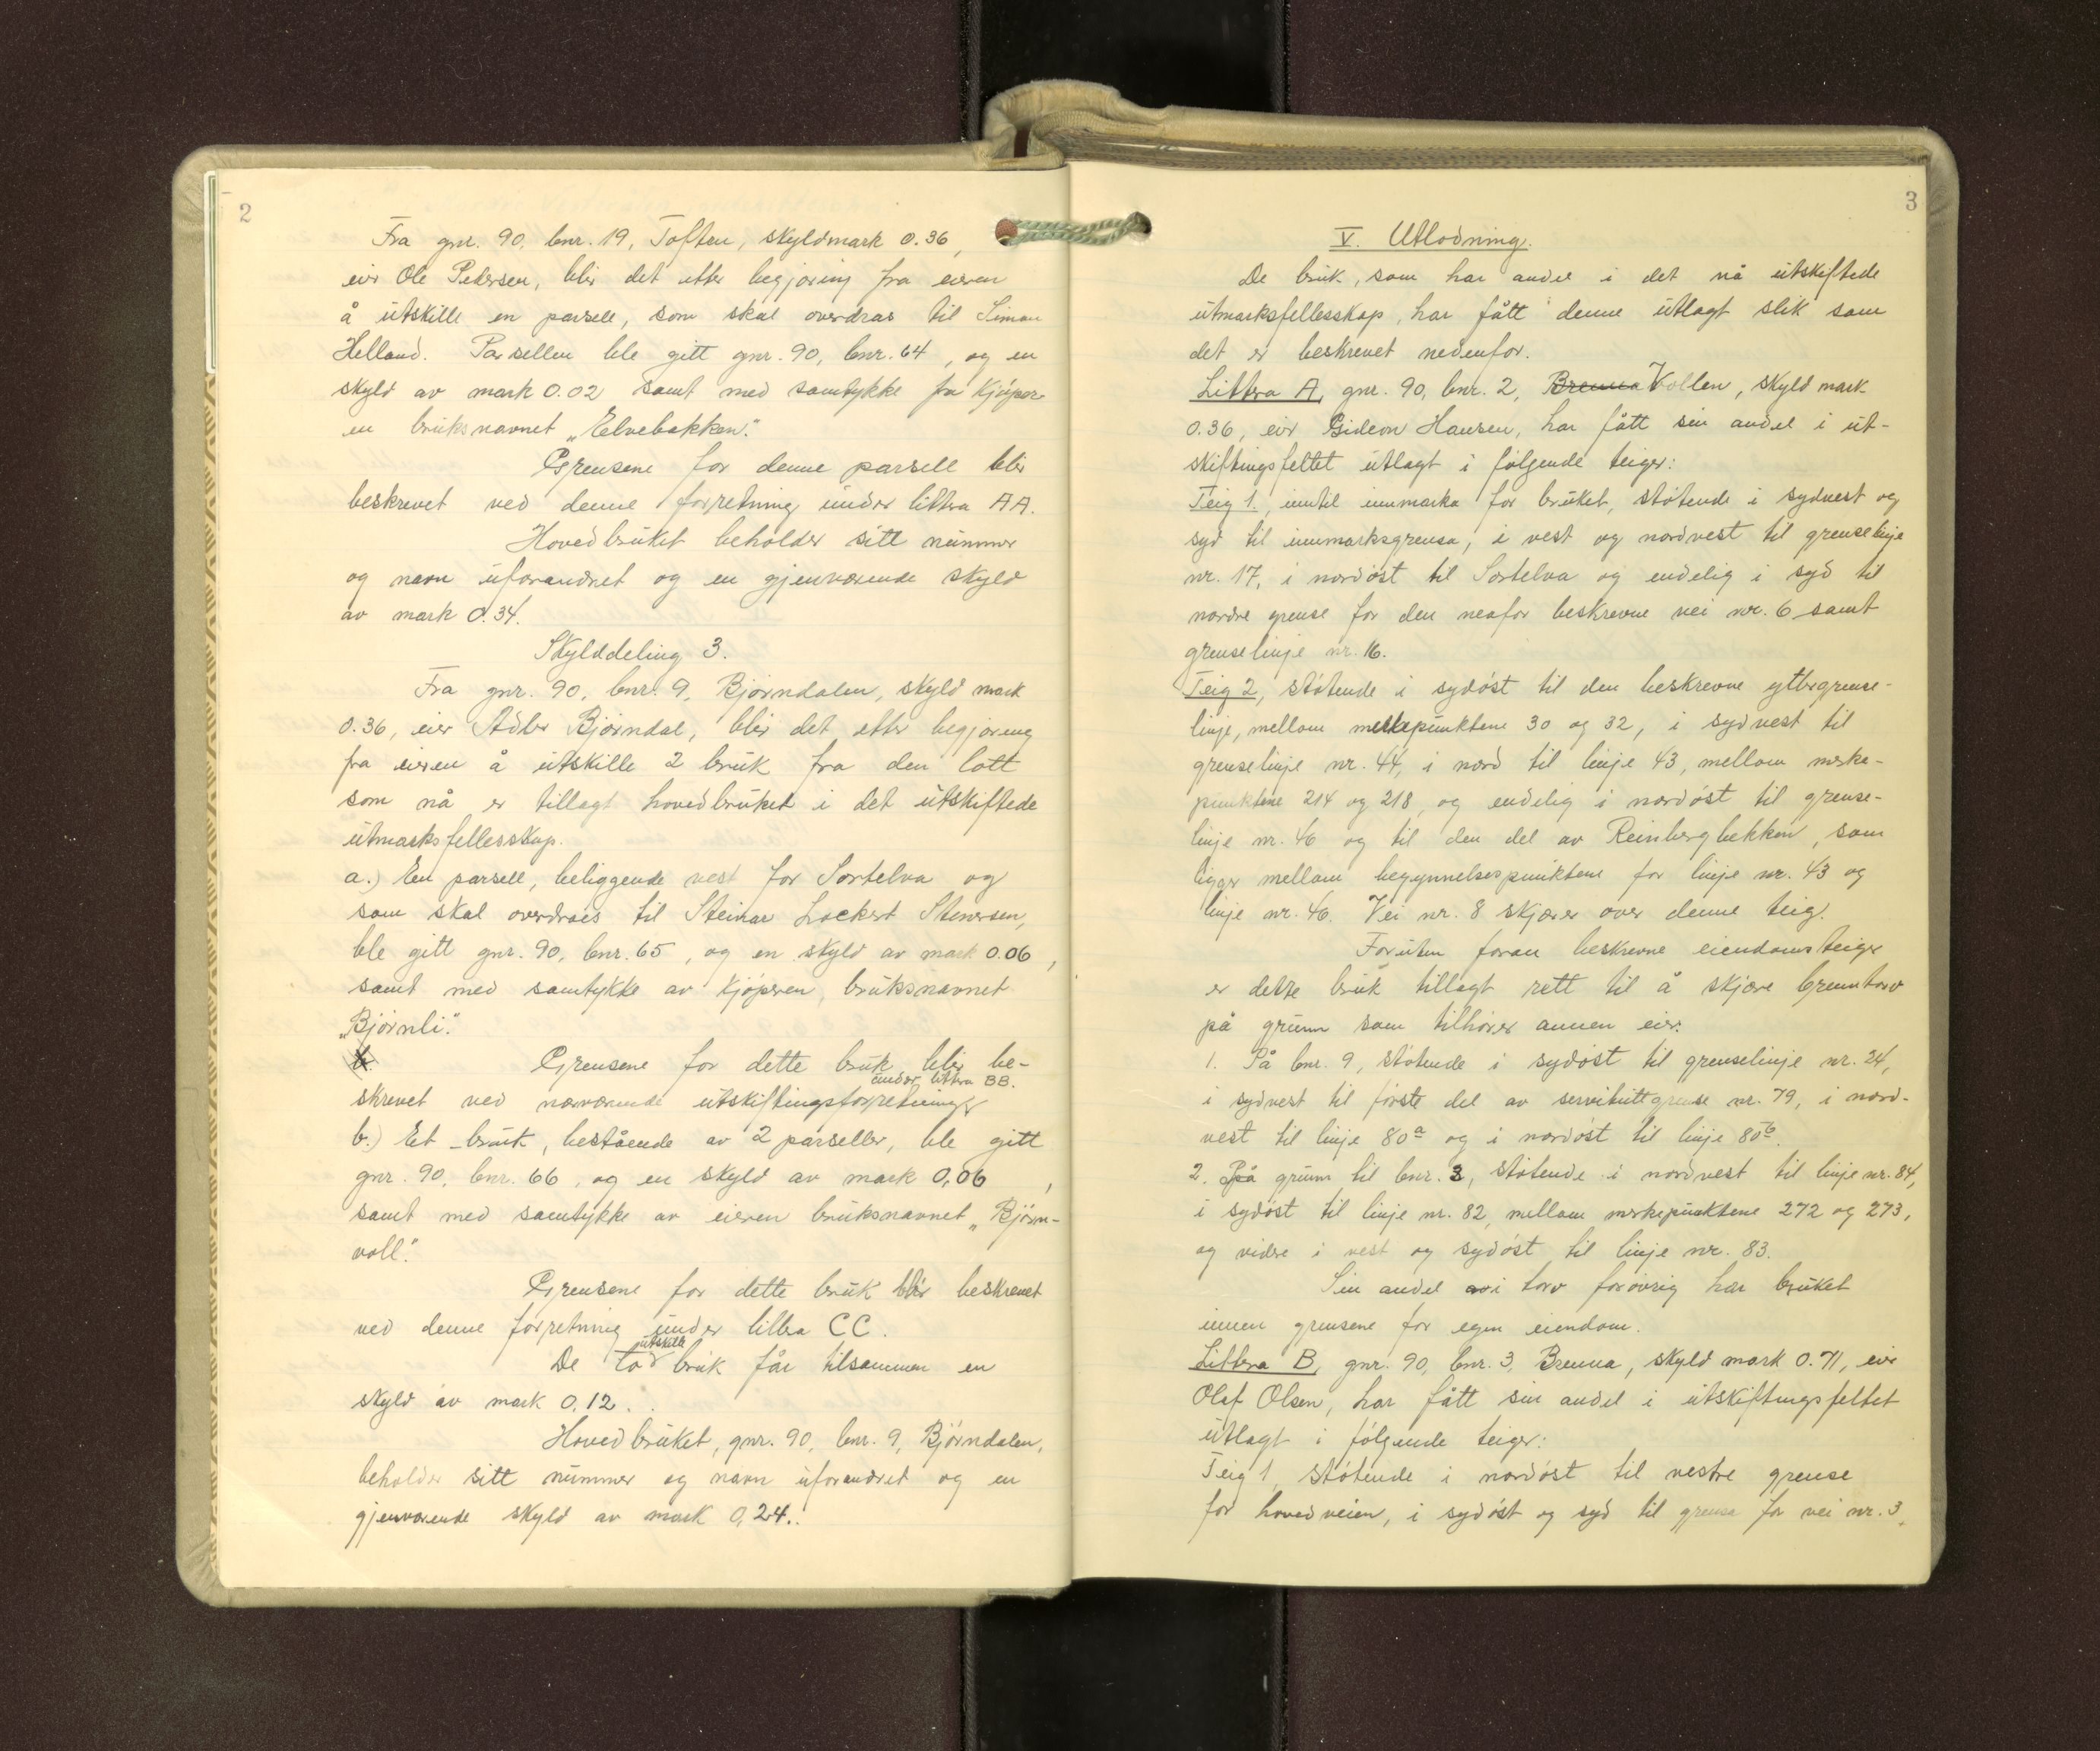 2
Fra gnr. 90, bnr. 19, Toften, skyldmark 0.36,
eier Ole Pedersen, blir det etter begjæring fra eieren
å utskille en parsell, som skal overdras til Simon
Helland. Parsellen ble gitt gnr. 90, bnr. 64, og en
skyld av mark 0.02 samt med samtykke fra kjøper-
en bruksnavnet „Elvebakken."
Grensene for denne parsell blir
beskrevet ved denne forretning under littra AA.
Hovedbruket beholder sitt nummer
og navn uforandret og en gjenværende skyld
av mark 0.34.
Skylddeling 3.
Fra gnr. 90, bnr. 9, Bjørndalen, skyld mark
0.36, eier Adler Bjørndal, blir det etter begjæring
fra eieren å utskille 2 bruk fra den lott
som nå er tillagt hovedbruket i det utskiftede
utmarksfellesskap.
a.) En parsell, beliggende vest for Sortelva og
som skal overdraes til Steinar Lockert Stenersen,
ble gitt gnr. 90, bnr. 65, og en skyld av mark 0.06,
samt med samtykke av kjøperen, bruksnavnet
„Bjørnli."
b. Grensene for dette bruk blir be-
under littra BB.
skrevet ved nærværende utskiftingsforretning
b.) Et bruk, bestående av 2 parseller, ble gitt
gnr. 90, bnr. 66, og en skyld av mark 0,06,
samt med samtykke av eieren bruksnavnet „Bjørn-
voll."
Grensene for dette bruk blir beskrevet
ved denne forretning under littra CC.
utskilte
De to bruk får tilsammen en
skyld av mark 0,12.
Hovedbruket, gnr. 90, bnr. 9, Bjørndalen,
beholder sitt nummer og navn uforandret og en
gjenværende skyld av mark 0,24.
3
V. Utlodning.
De bruk, som har andel i det nå utskiftede
utmarksfellesskap, har fått denne utlagt slik som
det er beskrevet nedenfor.
Littra A, gnr. 90, bnr. 2, Brenna Vollen, skyld mark
0.36, eier Gideon Hansen, har fått sin andel i ut-
skiftingsfeltet utlagt i følgende teiger:
Teig 1, inntil innmarka for bruket, støtende i sydvest og
syd til innmarksgrensa, i vest og nordvest til grenselinje
nr. 17, i nordøst til Sortelva og endelig i syd til
nordre grense for den neafor beskrevne vei nr. 6 samt
grenselinje nr. 16.
Teig 2, støtende i sydøst til den beskrevne yttergrense-
linje, mellom merkepunktene 30 og 32, i sydvest til
grenselinje nr. 44, i nord til linje 43, mellom merke-
punktene 214 og 218, og endelig i nordøst til grense-
linje nr. 46 og til den del av Reinbergbekken, som
ligger mellom begynnelsespunktene for linje nr. 43 og
linje nr. 46. Vei nr. 8 skjærer over denne teig.
Foruten foran beskrevne eiendomsteiger
er dette bruk tillagt rett til å skjære brenntorv
på grunn som tilhører annen eier.
1. På bnr. 9, støtende i sydøst til grenselinje nr. 24,
i sydvest til første del av servituttgrense nr. 79, i nord-
vest til linje 80a og i nordøst til linje 80b.
2. På grunn til bnr. 3, støtende i nordvest til linje nr. 84,
i sydøst til linje nr. 82, mellom merkepunktene 272 og 273,
og videre i vest og sydøst til linje nr. 83.
Sin andel i torv forøvrig har bruket
innen grensene for egen eiendom.
Littra B, gnr. 90, bnr. 3, Brenna, skyld mark 0.71, eier
Olaf Olsen, har fått sin andel i utskiftingsfeltet
utlagt i følgende teiger:
Teig 1, støtende i nordøst til vestre grense
for hovedveien, i sydøst og syd til grensa for vei nr. 3,